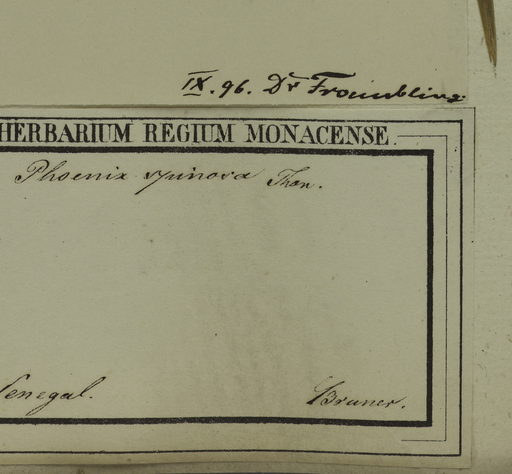 IX. 96. Dr Froembling
HERBARIUM REGIUM MONACENSE.
Phoenix spinosa Thon.
Senegal.
Bruner.